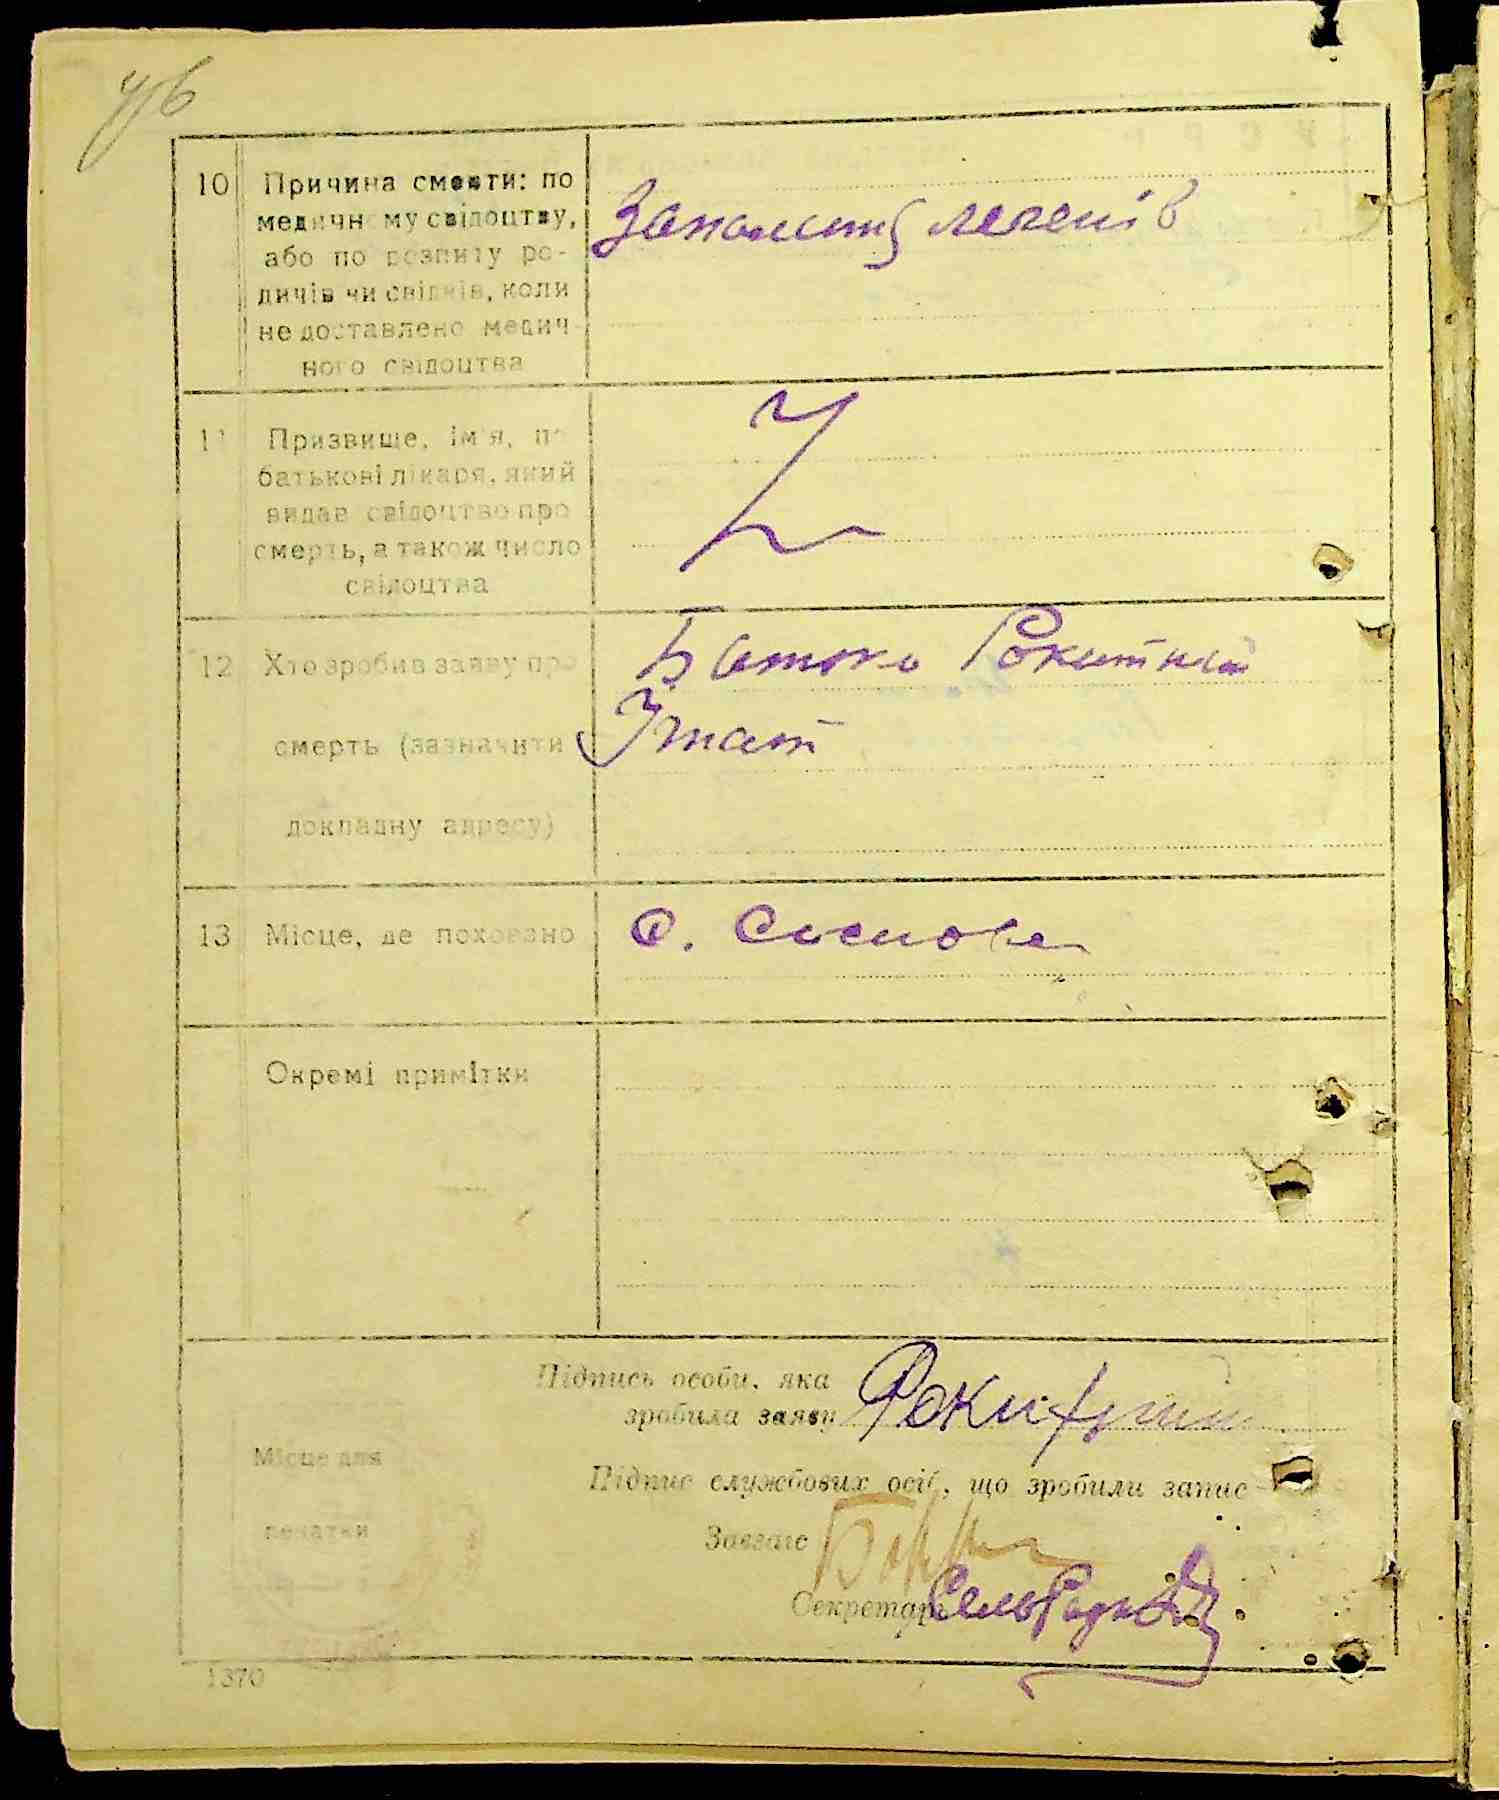 10 Причина смерти: по
медичному свідоцтву,
або по розпиту ро-
дичів чи свідків, коли
не доставлено медич-
ного свідоцтва
Запалення легенів
11 Призвище, ім'я, по
батькові лікаря, який
видав свідоцтво про
смерть, а також число
свідоцтва
12 Хто зробив заяву про
смерть (зазначити
докладну адресу)
Батько Рокитний
Ігнат
13 Місце, де поховано
с. Соснова
Окремі примітки
Підпись особи, яка
зробила заяву Рокитний
Підпис службових осіб, що зробили запис
Місце для
печатки
Завзагс
Секретарь СельРади
1370